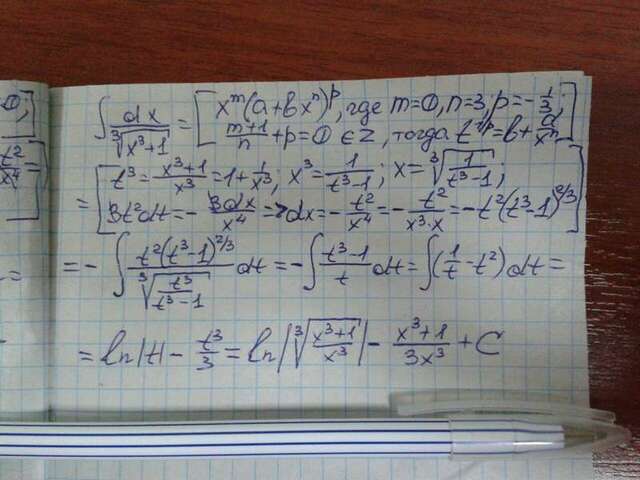 ∫ dx/∛(x³+1) = [ x^m(a+bx^n)^p, где m=0, n=3, p=-1/3;
(m+1)/n + p = 0 ∈ Z, тогда t^(1/p) = b + a/x^n ]
= [ t³ = (x³+1)/x³ = 1 + 1/x³; x³ = 1/(t³-1); x = ∛(1/(t³-1));
3t²dt = -3dx/x⁴ => dx = -t²/x⁴ = -t²/(x³·x) = -t²(t³-1)^(2/3) ]
= -∫ t²(t³-1)^(2/3)/∛(t³/(t³-1)) dt = -∫ (t³-1)/t dt = ∫(1/t - t²)dt =
= ln|t| - t³/3 = ln|∛((x³+1)/x³)| - (x³+1)/(3x³) + C